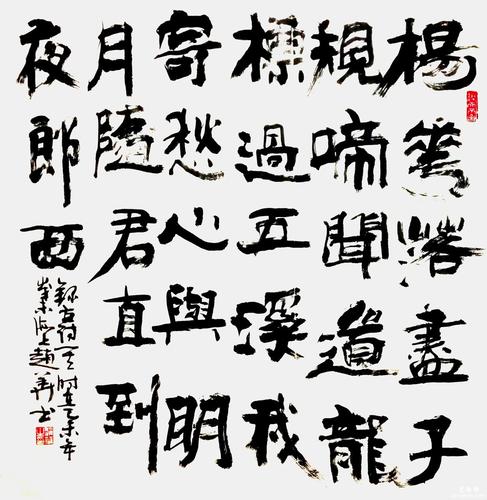 楊花落盡子
規啼聞道龍
標過五溪我
寄愁心與明
月隨君直到
夜郎西
錄古詩一首时在乙未年
海上趙書